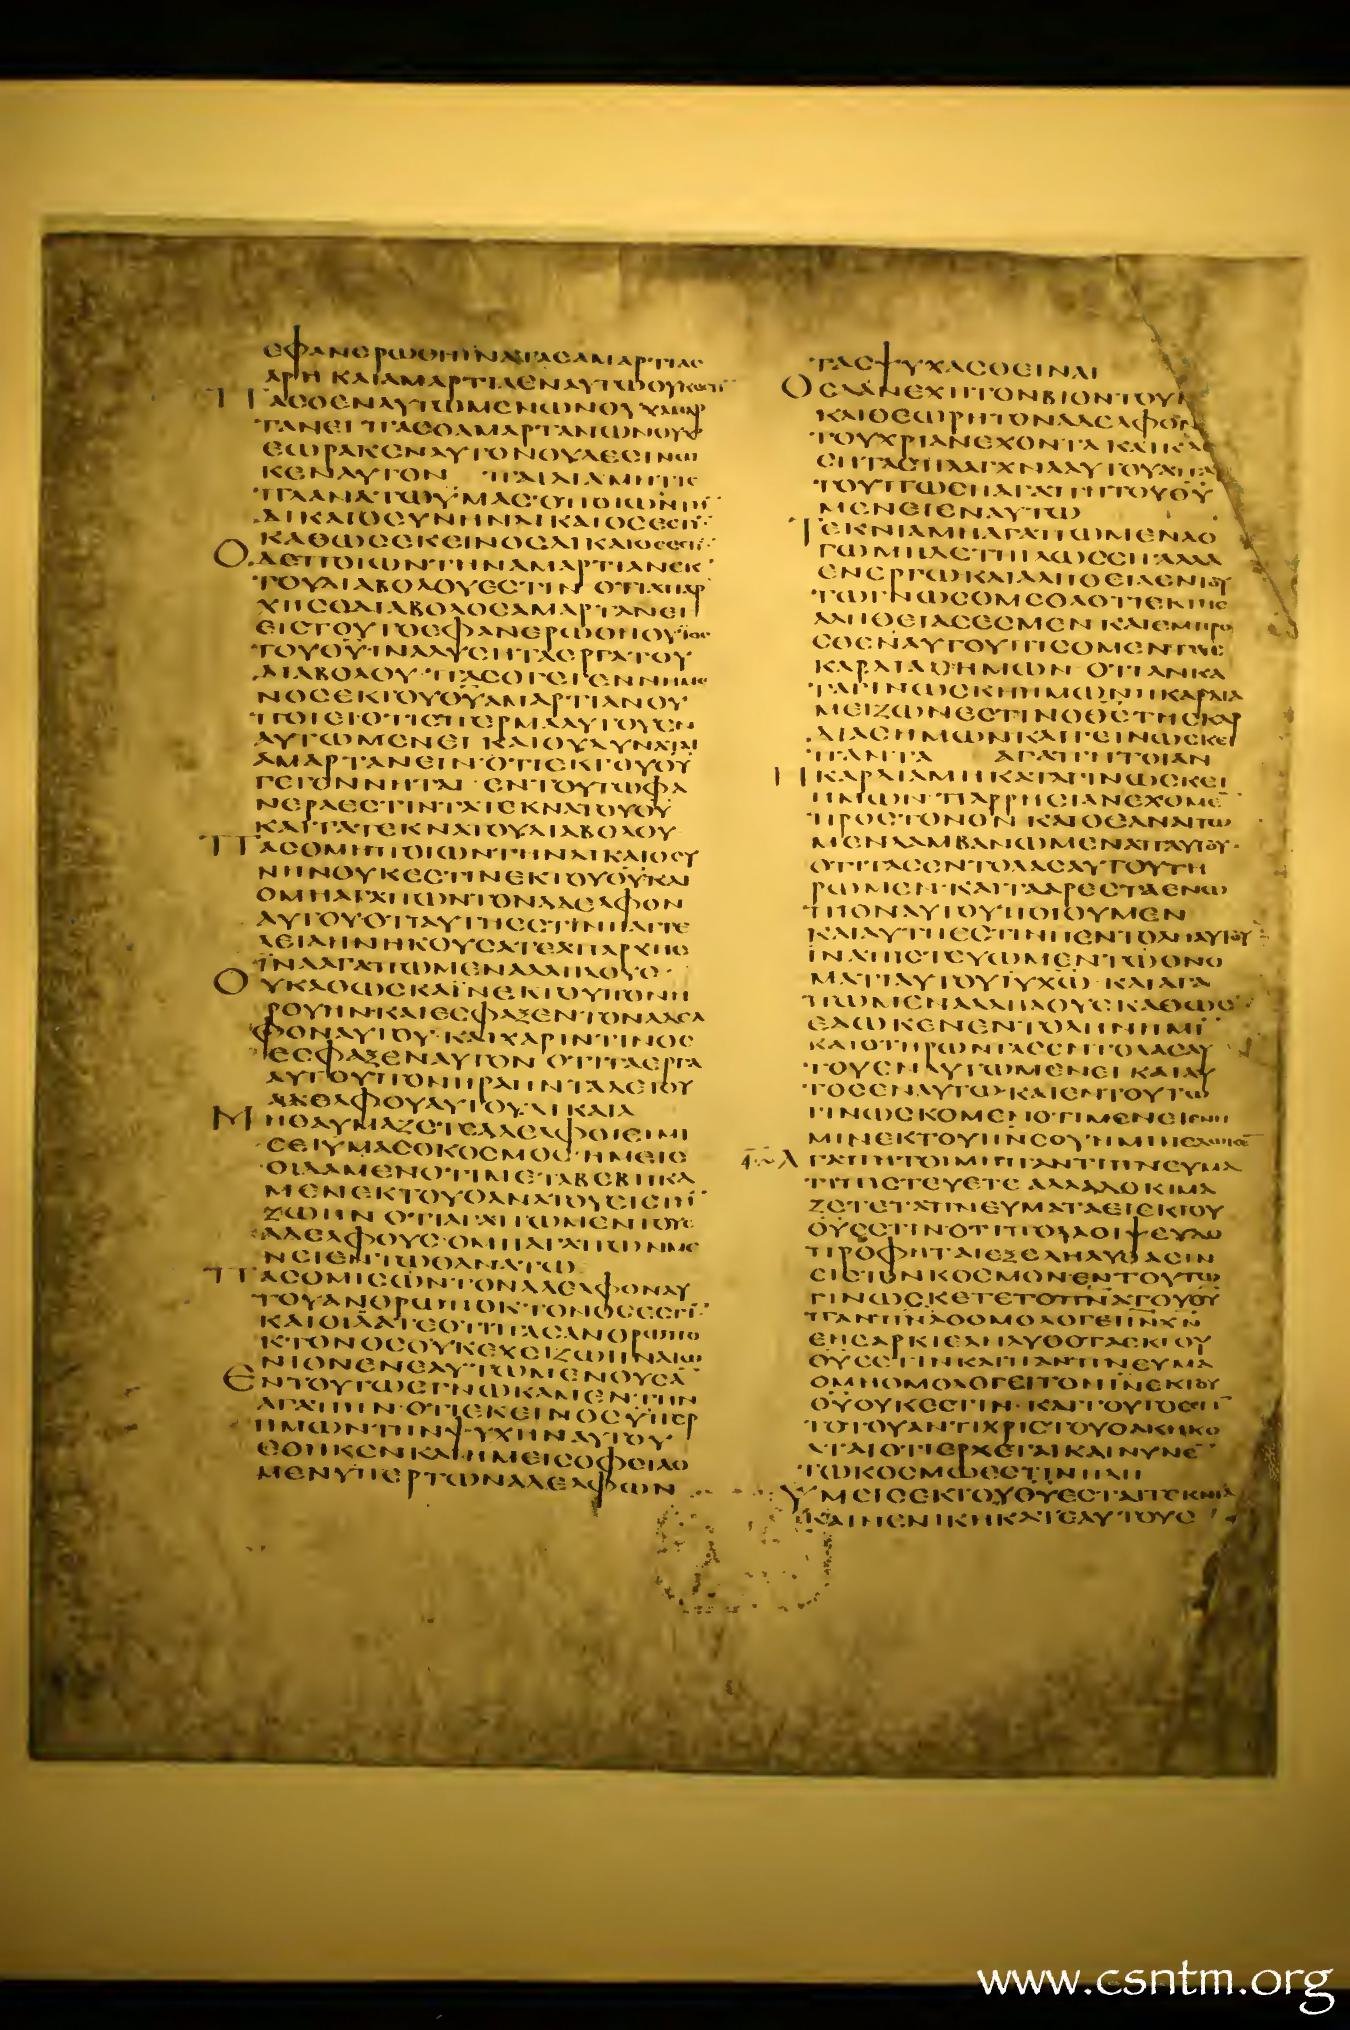 ΕΦΑΝΕΡΩΘΗΙΝΑΤΑϹΑΜΑΡΤΙΑϹ
ΑΡΗ ΚΑΙΑΜΑΡΤΙΑΕΝΑΥΤΩΟΥΚΕϹΤΙ
ΠΑϹΟΕΝΑΥΤΩΜΕΝΩΝΟΥΧΑΜΑΡ
ΤΑΝΕΙ ΠΑϹΟΑΜΑΡΤΑΝΩΝΟΥΧ
ΕΩΡΑΚΕΝΑΥΤΟΝΟΥΔΕΕΓΝΩ
ΚΕΝΑΥΤΟΝ ΠΑΙΔΙΑΜΗΤΙϹ
ΠΛΑΝΑΤΩΫΜΑϹ·ΟΠΟΙΩΝΤΗ̅
ΔΙΚΑΙΟϹΥΝΗΝΔΙΚΑΙΟϹΕϹΤΙ̅
ΚΑΘΩϹΕΚΕΙΝΟϹΔΙΚΑΙΟϹΕϹΤΙ̅
ΟΔΕΠΟΙΩΝΤΗΝΑΜΑΡΤΙΑΝΕΚ
ΤΟΥΔΙΑΒΟΛΟΥΕϹΤΙΝ ΟΤΙΑΠΑΡ
ΧΗϹΟΔΙΑΒΟΛΟϹΑΜΑΡΤΑΝΕΙ
ΕΙϹΤΟΥΤΟΕΦΑΝΕΡΩΘΗΟΥΙΟϹ
ΤΟΥΘ̅Υ̅ΙΝΑΛΥϹΗΤΑΕΡΓΑΤΟΥ
ΔΙΑΒΟΛΟΥ·ΠΑϹΟΓΕΓΕΝΝΗΜΕ
ΝΟϹΕΚΤΟΥΘ̅Υ̅ΑΜΑΡΤΙΑΝΟΥ
ΠΟΙΕΙΟΤΙϹΠΕΡΜΑΑΥΤΟΥΕΝ
ΑΥΤΩΜΕΝΕΙ ΚΑΙΟΥΔΥΝΑΤΑΙ
ΑΜΑΡΤΑΝΕΙΝ·ΟΤΙΕΚΤΟΥΘ̅Υ̅
ΓΕΓΕΝΝΗΤΑΙ ΕΝΤΟΥΤΩΦΑ
ΝΕΡΑΕϹΤΙΝΤΑΤΕΚΝΑΤΟΥΘ̅Υ̅
ΚΑΙΤΑΤΕΚΝΑΤΟΥΔΙΑΒΟΛΟΥ
ΠΑϹΟΜΗΠΟΙΩΝΤΗΝΔΙΚΑΙΟϹΥ
ΝΗΝΟΥΚΕϹΤΙΝΕΚΤΟΥΘ̅Υ̅ΚΑΙ
ΟΜΗΑΓΑΠΩΝΤΟΝΑΔΕΛΦΟΝ
ΑΥΤΟΥΟΤΙΑΥΤΗΕϹΤΙΝΗΑΓΓΕ
ΛΕΙΑΗΝΗΚΟΥϹΑΤΕΑΠΑΡΧΗϹ
ΪΝΑΑΓΑΠΩΜΕΝΑΛΛΗΛΟΥϹ·
ΟΥΚΑΘΩϹΚΑΪΝΕΚΤΟΥΠΟΝΗ
ΡΟΥΗΝ·ΚΑΙΕϹΦΑΞΕΝΤΟΝΑΔΕΛ
ΦΟΝΑΥΤΟΥ·ΚΑΙΧΑΡΙΝΤΙΝΟϹ
ΕϹΦΑΞΕΝΑΥΤΟΝ ΟΤΙΤΑΕΡΓΑ
ΑΥΤΟΥΠΟΝΗΡΑΗΝΤΑΔΕΤΟΥ
ΑΔΕΛΦΟΥΑΥΤΟΥΔΙΚΑΙΑ
ΜΗΘΑΥΜΑΖΕΤΕΑΔΕΛΦΟΙΕΙΜΙ
ϹΕΙΥΜΑϹΟΚΟϹΜΟϹ·ΗΜΕΙϹ
ΟΙΔΑΜΕΝΟΤΙΜΕΤΑΒΕΒΗΚΑ
ΜΕΝΕΚΤΟΥΘΑΝΑΤΟΥΕΙϹΤΗ̅
ΖΩΗΝ ΟΤΙΑΓΑΠΩΜΕΝΤΟΥϹ
ΑΔΕΛΦΟΥϹ·ΟΜΗΑΓΑΠΩΝΜΕ
ΝΕΙΕΝΤΩΘΑΝΑΤΩ
ΠΑϹΟΜΙϹΩΝΤΟΝΑΔΕΛΦΟΝΑΥ
ΤΟΥΑΝΘΡΩΠΟΚΤΟΝΟϹΕϹΤΙ̅·
ΚΑΙΟΙΔΑΤΕΟΤΙΠΑϹΑΝΘΡΩΠΟ
ΚΤΟΝΟϹΟΥΚΕΧΕΙΖΩΗΝΑΙΩ
ΝΙΟΝΕΝΕΑΥΤΩΜΕΝΟΥϹΑ̅
ΕΝΤΟΥΤΩΕΓΝΩΚΑΜΕΝΤΗΝ
ΑΓΑΠΗΝ·ΟΤΙΕΚΕΙΝΟϹΫΠΕΡ
ΗΜΩΝΤΗΝΨΥΧΗΝΑΥΤΟΥ
ΕΘΗΚΕΝΚΑΙΗΜΕΙϹΟΦΕΙΛΟ
ΜΕΝΥΠΕΡΤΩΝΑΔΕΛΦΩΝ
ΤΑϹΨΥΧΑϹΘΕΙΝΑΙ
ΟϹΔΑΝΕΧΗΤΟΝΒΙΟΝΤΟΥΚ
ΚΑΙΘΕΩΡΗΤΟΝΑΔΕΛΦΟΝ
ΤΟΥΧΡΙΑΝΕΧΟΝΤΑΚΑΙΚΛΕ
ϹΗΤΑϹΠΛΑΓΧΝΑΑΥΤΟΥΑΠΑ
ΤΟΥΠΩϹΗΑΓΑΠΗΤΟΥΘ̅Υ̅
ΜΕΝΕΙΕΝΑΥΤΩ
ΤΕΚΝΙΑΜΗΑΓΑΠΩΜΕΝΛΟ
ΓΩΜΗΔΕΤΗΓΛΩϹϹΗ·ΑΛΛΑ
ΕΝΕΡΓΩΚΑΙΑΛΗΘΕΙΑΕΝΤΟΥ
ΤΩΓΝΩϹΟΜΕΘΑΟΤΙΕΚΤΗϹ
ΑΛΗΘΕΙΑϹΕϹΜΕΝ ΚΑΙΕΜΠΡΟ
ϹΘΕΝΑΥΤΟΥΠΙϹΟΜΕΝΤΗΝ
ΚΑΡΔΙΑΝΗΜΩΝ·ΟΤΙΑΝΚΑ
ΤΑΓΙΝΩϹΚΗΗΜΩΝΗΚΑΡΔΙΑ
ΜΕΙΖΩΝΕϹΤΙΝΟΘ̅Ϲ̅ΤΗϹΚΑΡ
ΔΙΑϹΗΜΩΝΚΑΙΓΕΙΝΩϹΚΕΙ
ΠΑΝΤΑ ΑΓΑΠΗΤΟΙΑΝ
ΗΚΑΡΔΙΑΜΗΚΑΤΑΓΙΝΩϹΚΕΙ
ΗΜΩΝ·ΠΑΡΡΗϹΙΑΝΕΧΟΜΕ̅
ΠΡΟϹΤΟΝΘ̅Ν̅ ΚΑΙΟΕΑΝΑΙΤΩ
ΜΕΝΛΑΜΒΑΝΩΜΕΝΑΠΑΥΤΟΥ·
ΟΤΙΤΑϹΕΝΤΟΛΑϹΑΥΤΟΥΤΗ
ΡΩΜΕΝ·ΚΑΙΤΑΑΡΕϹΤΑΕΝΩ
ΠΙΟΝΑΥΤΟΥΠΟΙΟΥΜΕΝ
ΚΑΙΑΥΤΗΕϹΤΙΝΗΕΝΤΟΛΗΑΥΤΟΥ
ΪΝΑΠΙϹΤΕΥΩΜΕΝΤΩΟΝΟ
ΜΑΤΙΑΥΤΟΥΙ̅Υ̅Χ̅Ω̅ ΚΑΙΑΓΑ
ΠΩΜΕΝΑΛΛΗΛΟΥϹ ΚΑΘΩϹ
ΕΔΩΚΕΝΕΝΤΟΛΗΝΗΜΙ̅
ΚΑΙΟΤΗΡΩΝΤΑϹΕΝΤΟΛΑϹΑΥ
ΤΟΥΕΝΑΥΤΩΜΕΝΕΙ ΚΑΙΑΥ
ΤΟϹΕΝΑΥΤΩ·ΚΑΙΕΝΤΟΥΤΩ
ΓΙΝΩϹΚΟΜΕΝΟΤΙΜΕΝΕΙΕΝΗ
ΜΙΝΕΚΤΟΥΠ̅Ν̅ϹΟΥΗΜΙΝΕΔΩΚΕ̅
ΑΓΑΠΗΤΟΙΜΗΠΑΝΤΙΠΝΕΥΜΑ
ΤΙΠΙϹΤΕΥΕΤΕ ΑΛΛΑΔΟΚΙΜΑ
ΖΕΤΕΤΑΠΝΕΥΜΑΤΑΕΙΕΚΤΟΥ
Θ̅Υ̅ΕϹΤΙΝΟΤΙΠΟΛΛΟΙΨΕΥΔΟ
ΠΡΟΦΗΤΑΙΕΞΕΛΗΛΥΘΑϹΙΝ
ΕΙϹΤΟΝΚΟϹΜΟΝΕΝΤΟΥΤΩ
ΓΙΝΩϹΚΕΤΕΤΟΠ̅Ν̅Α̅ΤΟΥΘ̅Υ̅
ΠΑΝΠ̅Ν̅Α̅ΟΟΜΟΛΟΓΕΙΙ̅Ν̅Χ̅Ν̅
ΕΝϹΑΡΚΙΕΛΗΛΥΘΟΤΑΕΚΤΟΥ
Θ̅Υ̅ΕϹΤΙΝΚΑΙΠΑΝΠΝΕΥΜΑ
ΟΜΗΟΜΟΛΟΓΕΙΤΟΝΙ̅Ν̅ΕΚΤΟΥ
Θ̅Υ̅ΟΥΚΕϹΤΙΝ·ΚΑΙΤΟΥΤΟΕϹΤΙ̅
ΤΟΤΟΥΑΝΤΙΧΡΙϹΤΟΥΟΑΚΗΚΟ
ΑΤΑΙΟΤΙΕΡΧΕΤΑΙΚΑΙΝΥΝΕ̅
ΤΩΚΟϹΜΩΕϹΤΙΝΗΔΗ
ΥΜΕΙϹΕΚΤΟΥΘ̅Υ̅ΕϹΤΑΙΤΕΚΝΙΑ
ΚΑΙΝΕΝΙΚΗΚΑΤΕΑΥΤΟΥϹ
www.csntm.org